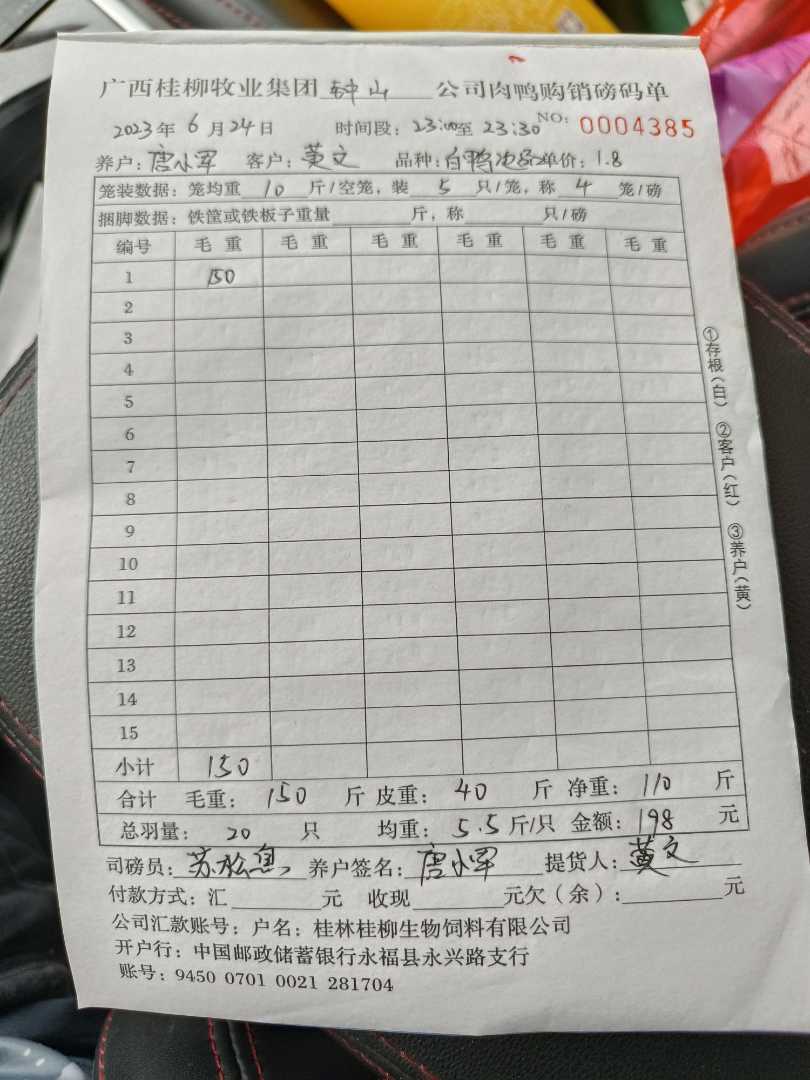 广西桂柳牧业集团 钟山 公司肉鸭购销磅码单
2023年 6月24日 时间段：23:00至23:30 NO：0004385
养户：唐小军 客户：黄文 品种：白鸭次品 单价：1.8
笼装数据：笼均重 10 斤/空笼，装 5 只/笼，称 4 笼/磅
捆脚数据：铁筐或铁板子重量 斤，称 只/磅
编号 毛重 毛重 毛重 毛重 毛重 毛重
1 150
2
3
4
5
6
7
8
9
10
11
12
13
14
15
小计 150
合计 毛重：150 斤 皮重：40 斤 净重：110 斤
总羽量：20 只 均重：5.5斤/只 金额：198 元
司磅员：苏 养户签名：唐小军 提货人：黄文
付款方式：汇 元 收现 元欠（余）： 元
公司汇款账号：户名：桂林桂柳生物饲料有限公司
开户行：中国邮政储蓄银行永福县永兴路支行
账号：9450 0701 0021 281704
①存根（白） ②客户（红） ③养户（黄）